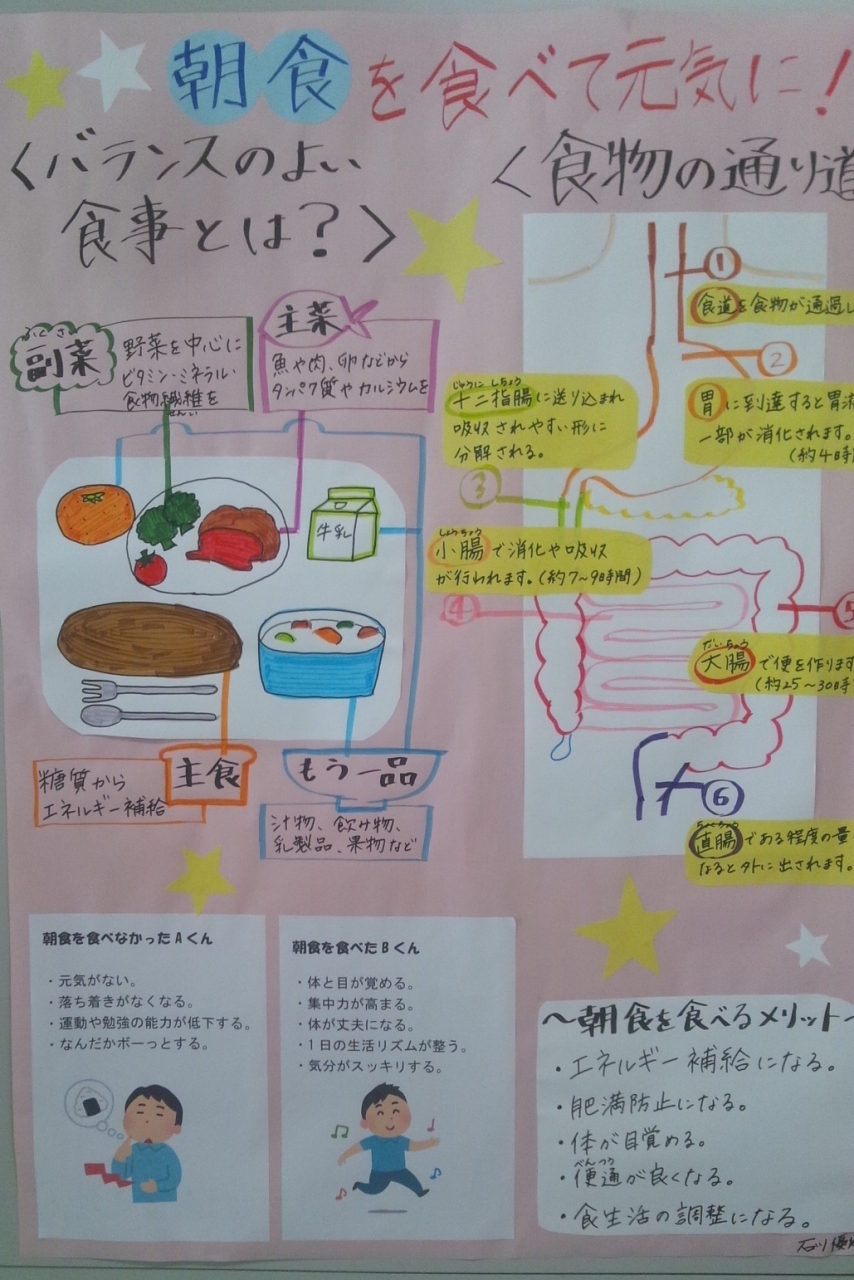 朝食を食べて元気に!
〈バランスのよい
食事とは?〉
ふくさい
副菜
野菜を中心に
ビタミン・ミネラル・
食物繊維を
せんい
主菜
魚や肉、卵などから
タンパク質やカルシウムを
牛乳
主食
糖質から
エネルギー補給
もう一品
汁物、飲み物、
乳製品、果物など
〈食物の通り道
①
食道を食物が通過し
②
胃に到達すると胃液
一部が消化されます。
(約4時間
じゅうにしちょう
十二指腸に送り込まれ
吸収されやすい形に
分解される。
③
しょうちょう
小腸で消化や吸収
が行われます。(約7~9時間)
④
⑤
だいちょう
大腸で便を作ります
(約25~30時
⑥
ちょくちょう
直腸である程度の量
なると外に出されます。
朝食を食べなかったAくん
・元気がない。
・落ち着きがなくなる。
・運動や勉強の能力が低下する。
・なんだかボーっとする。
朝食を食べたBくん
・体と目が覚める。
・集中力が高まる。
・体が丈夫になる。
・1日の生活リズムが整う。
・気分がスッキリする。
~朝食を食べるメリット~
・エネルギー補給になる。
・肥満防止になる。
・体が目覚める。
べんつう
・便通が良くなる。
・食生活の調整になる。